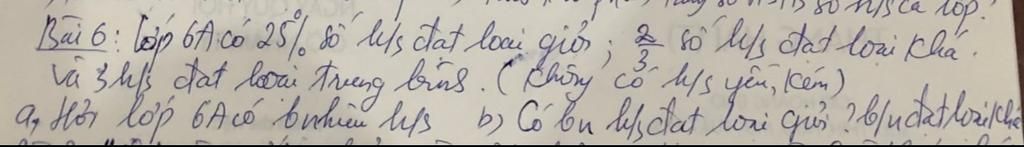 số h/s cả lớp.
Bài 6: Lớp 6A có 25% số h/s đạt loại giỏi; 2/3 số h/s đạt loại khá.
và 3 h/s đạt loại trung bình. (không có h/s yếu, kém)
a, Hỏi lớp 6A có bnhiêu h/s b) Có bn h/s đạt loại giỏi? b/n đạt loại khá